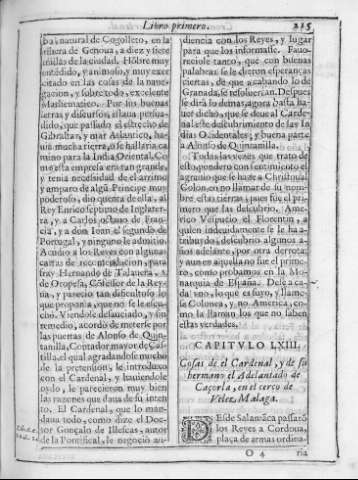 Libro primero. 215
ba, natural de Cogolleto, en la
ribera de Genoua, a diez y siete
millas de la ciudad. Hōbre muy
entēdido, y animoso, y muy exer
citado en las cosas de la naue-
gacion, y sobre todo, excelente
Mathematico. Por sus buenas
letras y discursos, estaua persua-
dido, que passado el estrecho de
Gibraltar, y mar Atlantico, ha-
uia mucha tierra, o se hallaria ca
mino para la India Oriental. Co
mo esta empresa era tan grande,
y tenia necessidad de el arrimo
y amparo de algū Principe muy
poderoso, dio quenta de ella, al
Rey Enrico septimo de Inglater-
ra, y a Carlos octauo de Fran-
cia, y a don Ioan el segundo de
Portugal, y ninguno le admitio.
Acudio a los Reyes con algunas
cartas de recomendacion, para
fray Hernando de Talauera,
de Oropesa, Cōfessor de la Rey-
na, y parecio tan dificultoso lo
que proponia, que no se le escu-
chò. Viendose desauciado, y sin
remedio, acordò de meterse por
las puertas de Alonso de Quin-
tanilla, Contador mayor de Cas-
tilla, el qual agradandose mucho
de la pretension, le introduxo
con el Cardenal, y hauiendole
oydo, le parecieron muy bien
las razones que daua de su inten
to. El Cardenal, que lo man-
daua todo, como dize el Doc-
tor Gonçalo de Illescas, autor
de la Pontifical, le negociò au-
diencia con los Reyes, y lugar
para que los informasse. Fauo-
reciole tanto, que con buenas
palabras se le dieron esperanças
ciertas, de que acabando lo de
Granada, se resoluerian. Despues
se dirà lo demas, agora basta ha-
uer dicho, que se deue al Carde-
nal este descubrimiento de las In
dias Occidentales; y buena parte
a Alonso de Quintanilla.
Todas las vezes que trato de
esto, pondero con sentimiento el
agrauio que se haze a Christoual
Colon, en no llamar de su nom-
bre estas tierras; pues fue el pri-
mero que las descubrio. Ame-
rico Vespucio el Florentin, a
quien indeuidamente se le ha a-
tribuydo, descubrio algunos a-
ños adelante, por otra derrota;
y aun en aquella no fue el prime-
ro, como probamos en la Mo-
narquia de España. Dese a ca-
da vno, lo que es suyo, y llame-
se Colonia, y no America, co-
mo la llaman los que no saben
estas verdades.
CAPITVLO LXIII.
Cosas de el Cardenal, y de su
hermano el Adelantado de
Caçorla, en el cerco de
Velez Malaga.
DEsde Salamāca passarō
los Reyes a Cordoua,
plaça de armas ordina-
O 4 ria